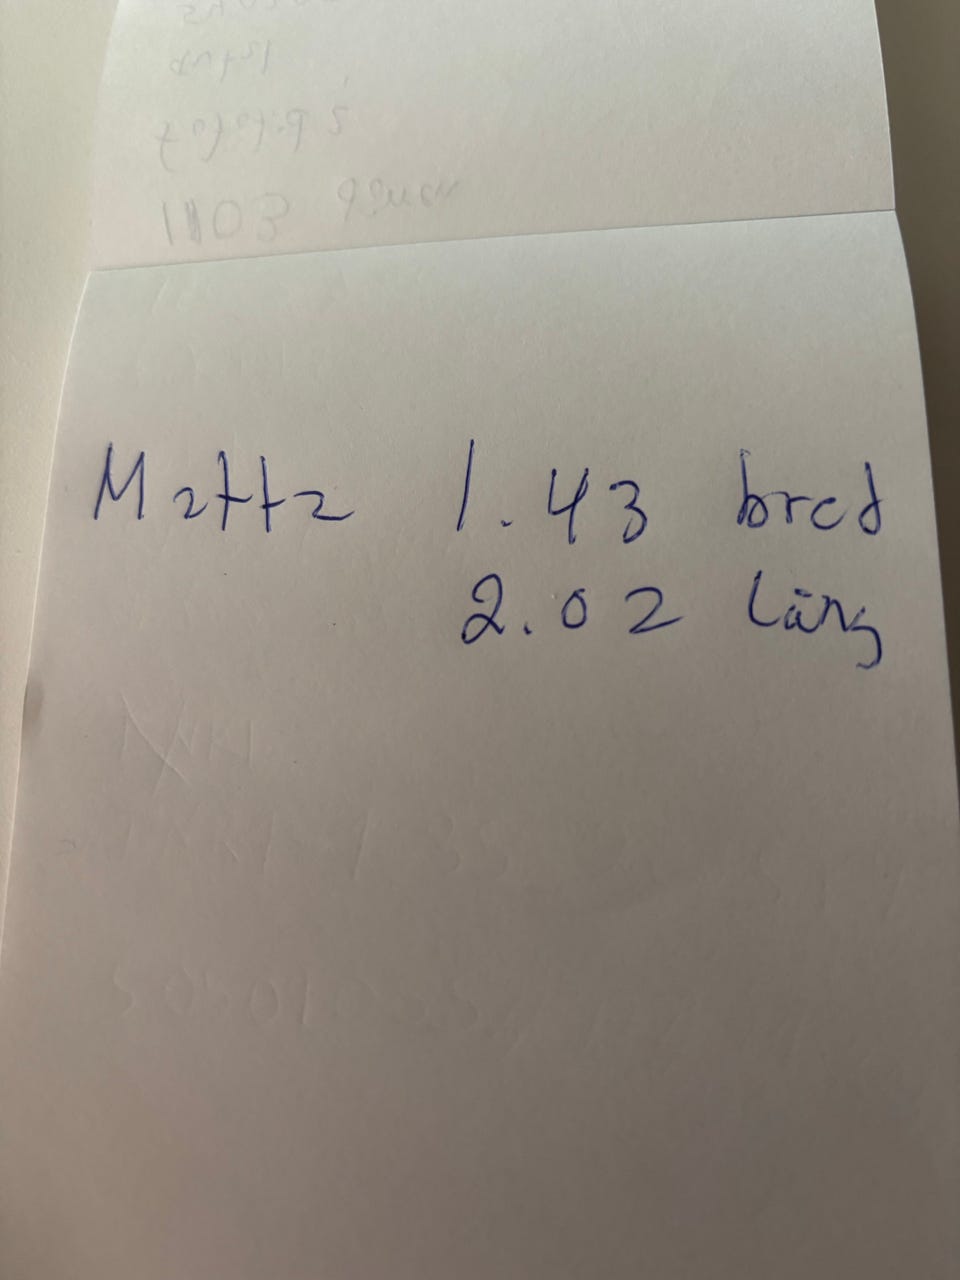 Matta 1.43 bred
2.02 lång